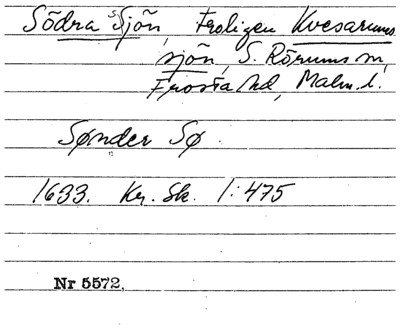 Södra Sjön, Troligen Kvesarums
sjön, S. Rörums sn,
Frosta hd, Malm. l.
Sønder Sø
1633. Kr. Sk. 1:475
Nr 5572.